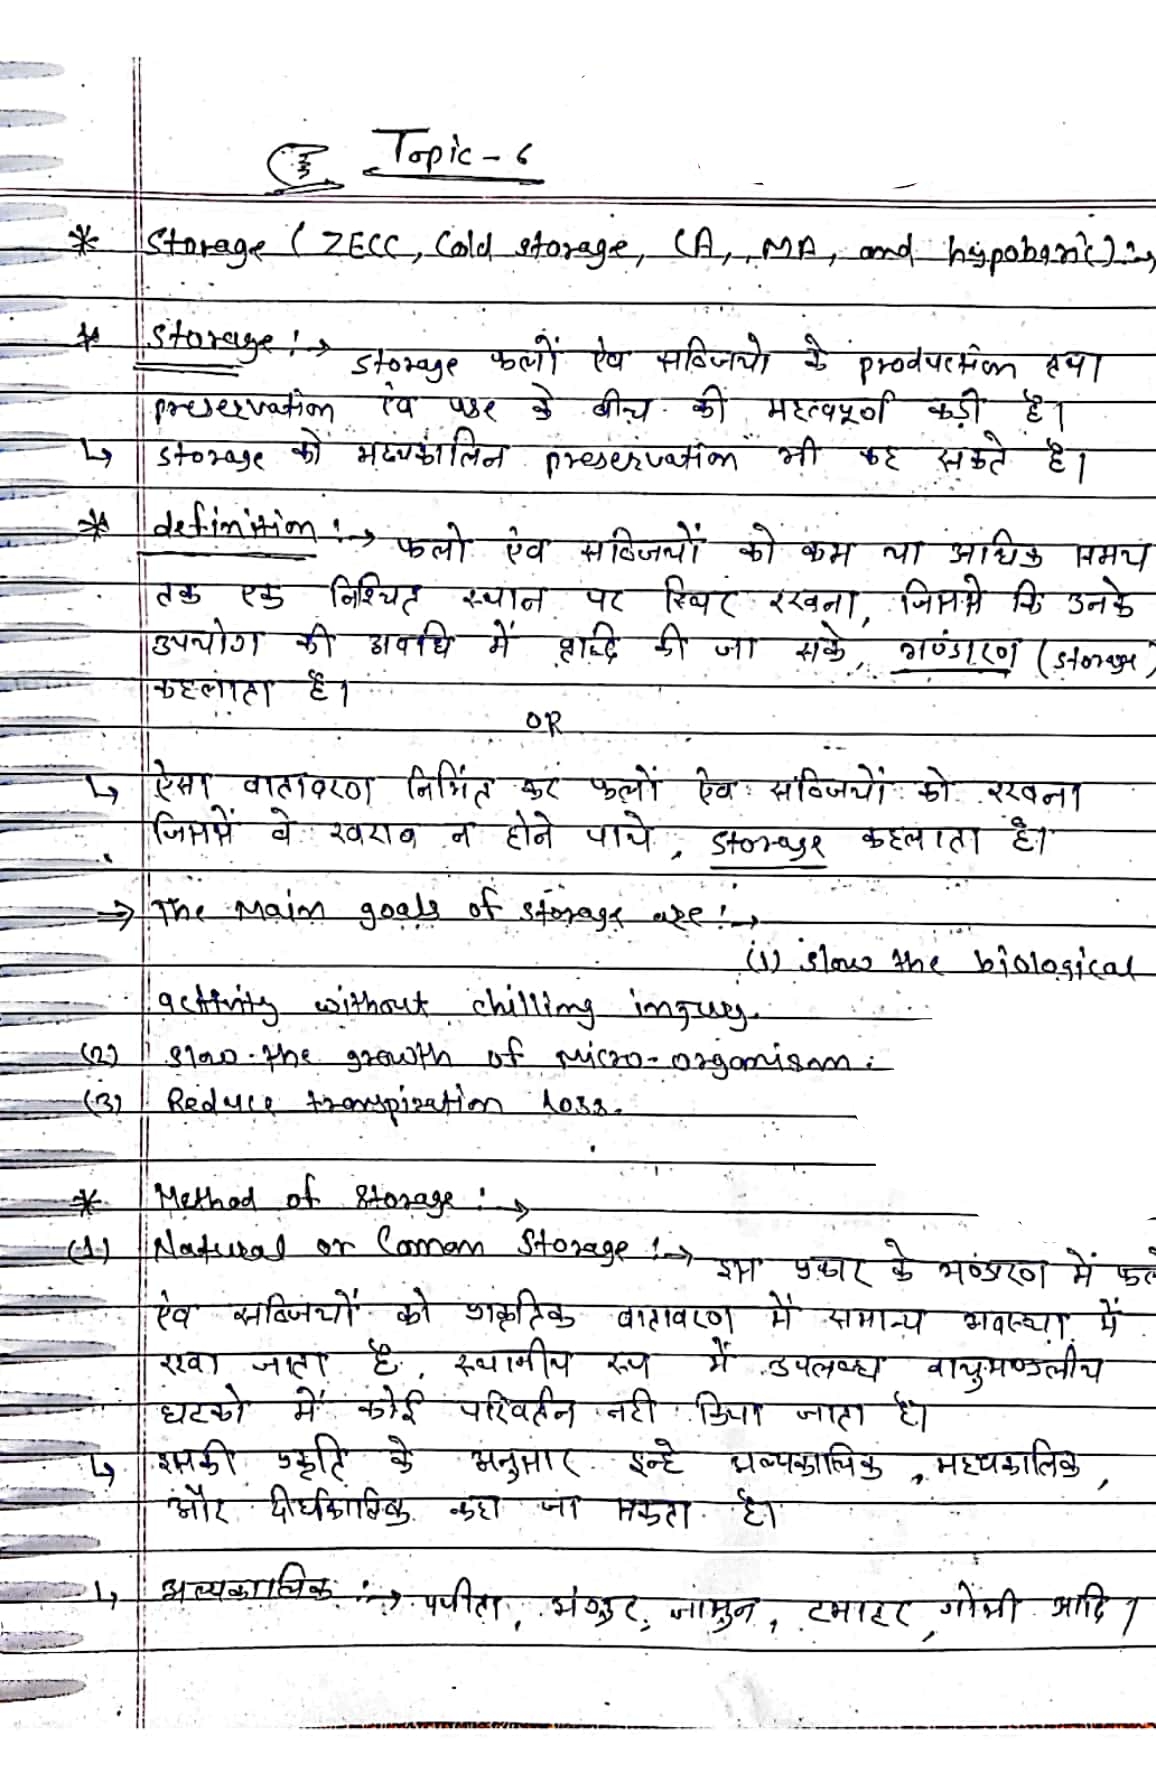 Topic - 6
* Storage (ZECC, Cold storage, CA, MA, and hypobaric) :→
* Storage :→ Storage फलों ऐव सब्जियो के production तथा
preservation एंव के बीच की महत्वपूर्ण कड़ी है।
↳ storage को मध्यकालिन preservation भी कह सकते है।
* definition :→ फलो एंव सब्जियों को कम या अधिक समय
तक एक निश्चित स्थान पर स्थिर रखना, जिससे कि उनके
उपयोग की अवधि में वृद्धि की जा सके, भण्डारण (storage)
कहलाता है।
OR
↳ ऐसा वातावरण निर्मित कर फलों ऐव सब्जियों को रखना
जिसमें वे खराब न होने पाये, storage कहलाता है।
⇒ The main goals of storage are :→
(1) slow the biological
activity without chilling injury.
(2) slow the growth of micro-organism.
(3) Reduce transpiration loss.
* Method of storage :→
(1) Natural or Coman Storage :→ इस प्रकार के भण्डारण में फलो
ऐव सब्जियों को प्राकृतिक वातावरण में सामान्य अवस्था में
रखा जाता है, स्थानीय रूप में उपलब्ध वायुमण्डलीय
घटको में कोई परिवर्तन नही किया जाता है।
↳ इसकी प्रकृति के अनुसार इन्हे अल्पकालिक, मध्यकालिक,
और दीर्घकालिक कहा जा सकता है।
↳ अल्पकालिक :→ पपीता, अंगुर, जामुन, टमाटर, गोभी आदि।